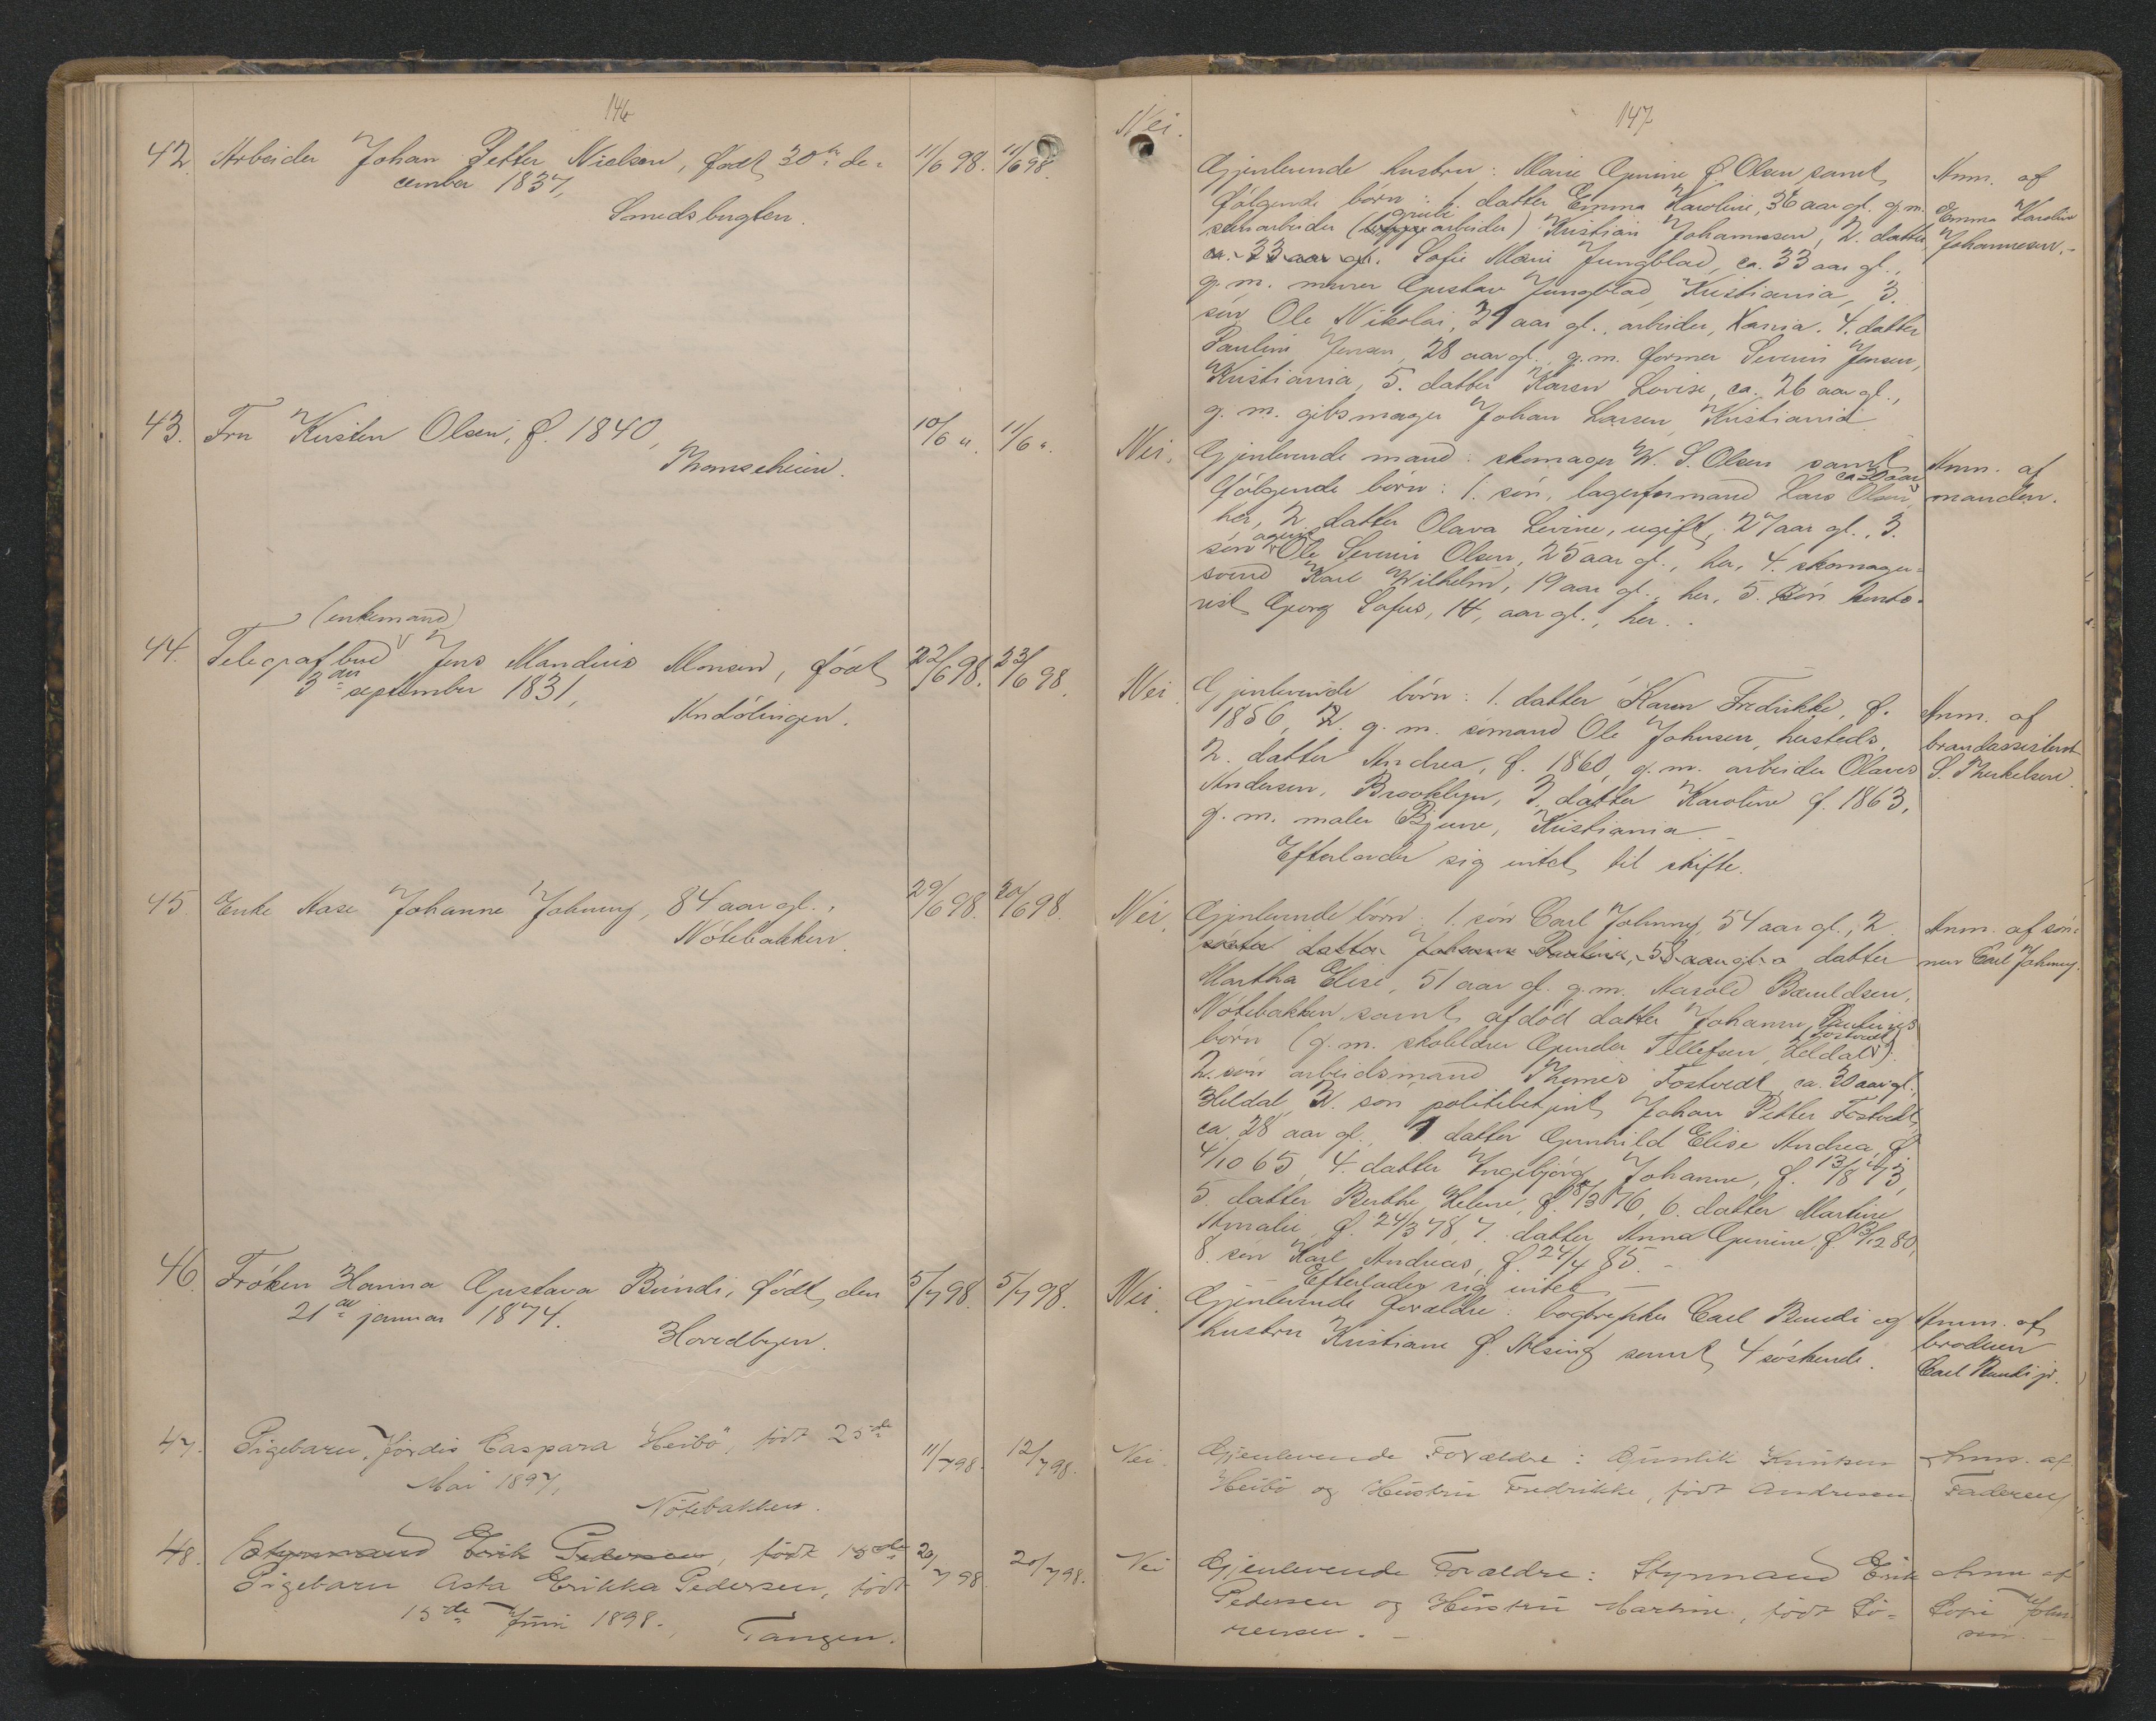 146
42. Arbeider Johan Petter Nielsen, født 30te de- 11/6 98. 11/6 98.
cember 1837,
Smedsbugten.
43. Fru Kirsten Olsen, f. 1840, 10/6 " 11/6 "
Thomesheien.
(enkemand)
44. Telegrafbud Jens Mandius Monsen, født 22/6 98. 23/6 98.
3die september 1831,
Kndölingen.
45. Enke Aase Johanne Johnny, 84 aar gl., 29/6 98. 30/6 98.
Nötebakken.
46. Fröken Hanna Gustava Bundi, født den 5/7 98. 5/7 98.
21de januar 1874.
Hovedbyen.
47. Pigebarn, Hjördis Caspara Heibö, født 25de 11/7 98. 12/7 98.
Mai 1897,
Nötebakken.
48. Styrmand Erik Pedersen, født 15de 20/7 98. 20/7 98.
Pigebarn Asta Erikka Pedersen, født
15de Juni 1898.
Tangen.
147
Nei. Gjenlevende hustru: Marie Gurine f. Olsen samt Anm. af
følgende börn: 1. datter Emma Karoline, 36 aar gl. g.m. Emma Karoline
grube
arbeider) Kristian Johannesen, 2. datter Johannesen.
ca. 33 aar gl. Sofie Marie Jungblad, ca. 33 aar gl.,
g.m. murer Gustav Jungblad, Kristiania, 3.
sön Ole Nikolai, 31 aar gl., arbeider, Kania. 4. datter
Pauline Jensen, 28 aar gl., g.m. former Severin Jensen,
Kristiania, 5. datter Karen Lovise, ca. 26 aar gl.,
g.m. gibsmager Johan Larsen, Kristiania.
Nei. Gjenlevende mand: skomager W. S. Olsen samt Anm. af
ca 30 aar
følgende börn: 1. sön, lagerformand Lars Olsen, manden.
her, 2. datter Olava Levine, ugift, 27 aar gl., 3.
agent
sön Ole Severin Olsen, 25 aar gl., her, 4. skomager-
svend Karl Wilhelm, 19 aar gl., her, 5. sön konto-
rist Georg Sofus, 14, aar gl., her.
Nei. Gjenlevende börn: 1. datter Karen Fredrikke, f. Anm. af
1856, g.m. sömand Ole Johnsen, hersteds, brandassistent
2. datter Andrea, f. 1860, g.m. arbeider Olaves S. Therkelsen.
Andersen, Brooklyn, 3. datter Karoline f. 1863,
g.m. maler Bjune, Kristiania
Efterlader sig intet til skifte.
Nei. Gjenlevende börn: 1. sön Carl Johnny, 54 aar gl., 2. Anm. af sön-
datter Johanne Pauline, 58 aar gl. datter nen Carl Johnny.
Martha Elise, 51 aar gl. g.m. Harold Bæruldsen,
Nötebakken samt afdöd datter Johanne Paulines
Fostvedt
börn (g.m. skolelærer Gunder Tellefsen, Heldal):
2. sön arbeidsmand Thomas Fostvedt, ca. 30 aar gl.,
Heldal, 2. sön politibetjent Johan Petter Fostvedt
ca. 28 aar gl., datter Gunhild Elise Andrea, f.
4/10 65, 4. datter Ingebjörg Johanne, f. 13/8 73,
5. datter Berthe Helene, f. 8/3 76, 6. datter Martine
Amalie, f. 24/3 78, 7. datter Anna Gurine f. 13/12 80,
8. sön Karl Andreas, f. 24/4 85.
Efterlader sig intet
Nei. Gjenlevende forældre: bogtrykker Carl Bundi og Anm. af
hustru Kristiane f. Alsing samt 4 söskende. broderen
Carl Bundi jr.
Nei. Gjenlevende Forældre: Gunlik Knutsen Anm. af
Heibö og Hustru Fredrikke, født Andresen. Faderen
Nei Gjenlevende Forældre: Styrmand Erik Anm af
Pedersen og Hustru Martine, født Sö- Sofie John-
rensen. sen.